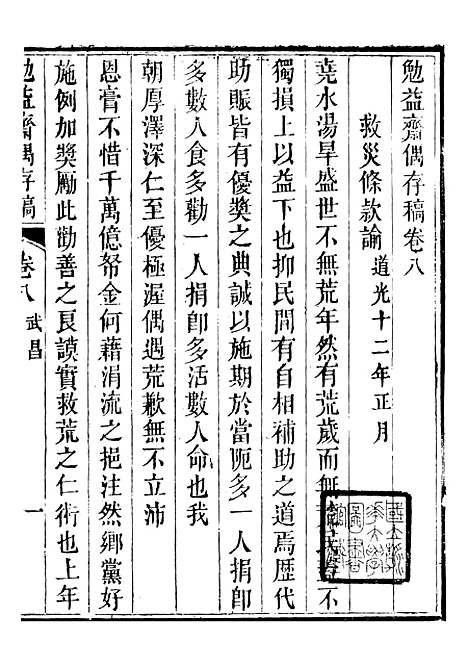 勉益齋偶存稿卷八
救災條款諭 道光十二年正月
堯水湯旱盛世不無荒年然有荒歲而無
不
獨損上以益下也抑民間有自相補助之道焉歷代
助賑皆有優獎之典誠以施期於當阨多一人捐卽
多數人食多勸一人捐卽多活數人命也我
朝厚澤深仁至優極渥偶遇荒歉無不立沛
恩膏不惜千萬億帑金何藉涓流之挹注然鄉黨好
施例加獎勵此勸善之良謨實救荒之仁術也上年
勉益齋偶存稿 卷八 武昌 一